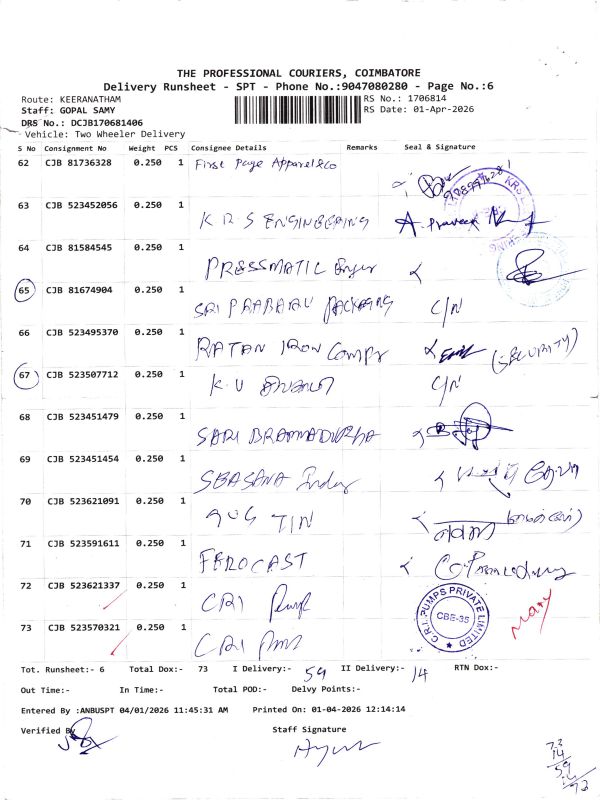 THE PROFESSIONAL COURIERS, COIMBATORE
Delivery Runsheet - SPT - Phone No.:9047080280 - Page No.:6
Route: KEERANATHAM RS No.: 1706814
Staff: GOPAL SAMY RS Date: 01-Apr-2026
DRS No.: DCJB170681406
Vehicle: Two Wheeler Delivery
S No Consignment No Weight PCS Consignee Details Remarks Seal & Signature
62 CJB 81736328 0.250 1 First Page Apparel & Co
63 CJB 523452056 0.250 1 K R S ENGINEERING A. Praveen
64 CJB 81584545 0.250 1 PRESSMATIC
65 CJB 81674904 0.250 1 SRI PRABAHU PACKAGING C/N
66 CJB 523495370 0.250 1 RATAN IRON (SECURITY)
67 CJB 523507712 0.250 1 K. V C/N
68 CJB 523451479 0.250 1 SARI
69 CJB 523451454 0.250 1 SBASANA
70 CJB 523621091 0.250 1 TIN
71 CJB 523591611 0.250 1 FEROCAST
72 CJB 523621337 0.250 1 CRI Pump
C.R.I. PUMPS PRIVATE LIMITED
CBE-35
Mary
73 CJB 523570321 0.250 1 CRI
Tot. Runsheet:- 6 Total Dox:- 73 I Delivery:- 59 II Delivery:- 14 RTN Dox:-
Out Time:- In Time:- Total POD:- Delvy Points:-
Entered By :ANBUSPT 04/01/2026 11:45:31 AM Printed On: 01-04-2026 12:14:14
Verified By Staff Signature
73
14
59
14
73